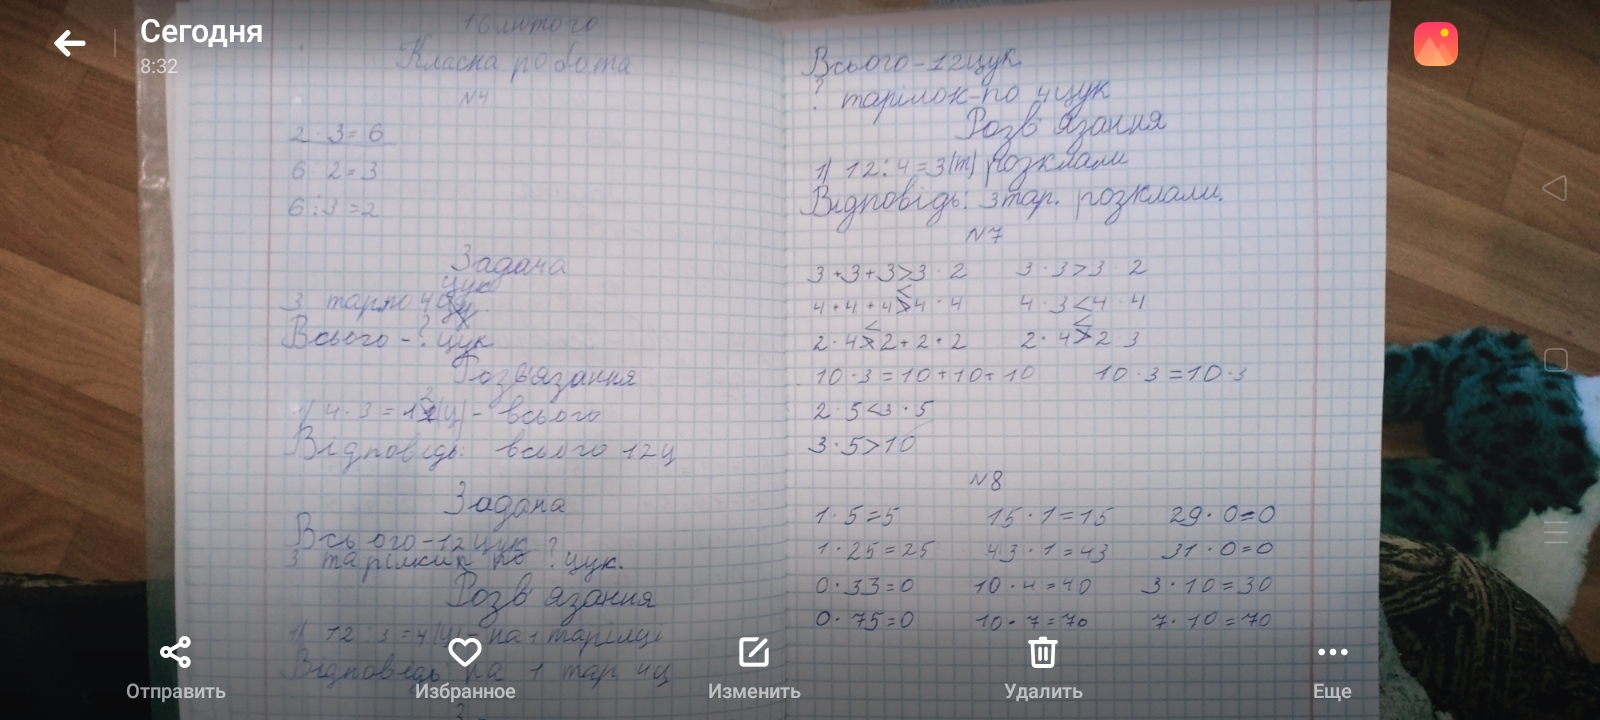 Сегодня
8:32
16 лютого
Класна робота
N4
2 · 3 = 6
6 : 2 = 3
6 : 3 = 2
Задача
цук
3 тар по 4
Всього - ? цук
Розв'язання
1) 4 · 3 = 12(ц) - всього
Відповідь: всього 12ц
Задача
Всього-12цук ?
3 тарілки по ? цук.
Розв'язання
1) 12 : 3 = 4(ц) на 1 тарілці
Відповідь на 1 тар 4ц
Всього-12цук
? тарілок-по 4цук
Розв'язання
1) 12 : 4 = 3(т) розклали
Відповідь: 3тар. розклали.
N7
3+3+3>3 · 2 3 · 3>3 · 2
4+4+4<4 · 4 4 · 3<4 · 4
2 · 4<2+2+2 2 · 4<2 3
10 · 3=10+10+10 10 · 3=10·3
2 · 5<3 · 5
3 · 5>10
N8
1 · 5=5 15 · 1=15 29 · 0=0
1 · 25=25 43 · 1=43 31 · 0=0
0 · 33=0 10 · 4=40 3 · 10=30
0 · 75=0 10 · 7=70 7 · 10=70
Отправить
Избранное
Изменить
Удалить
Еще